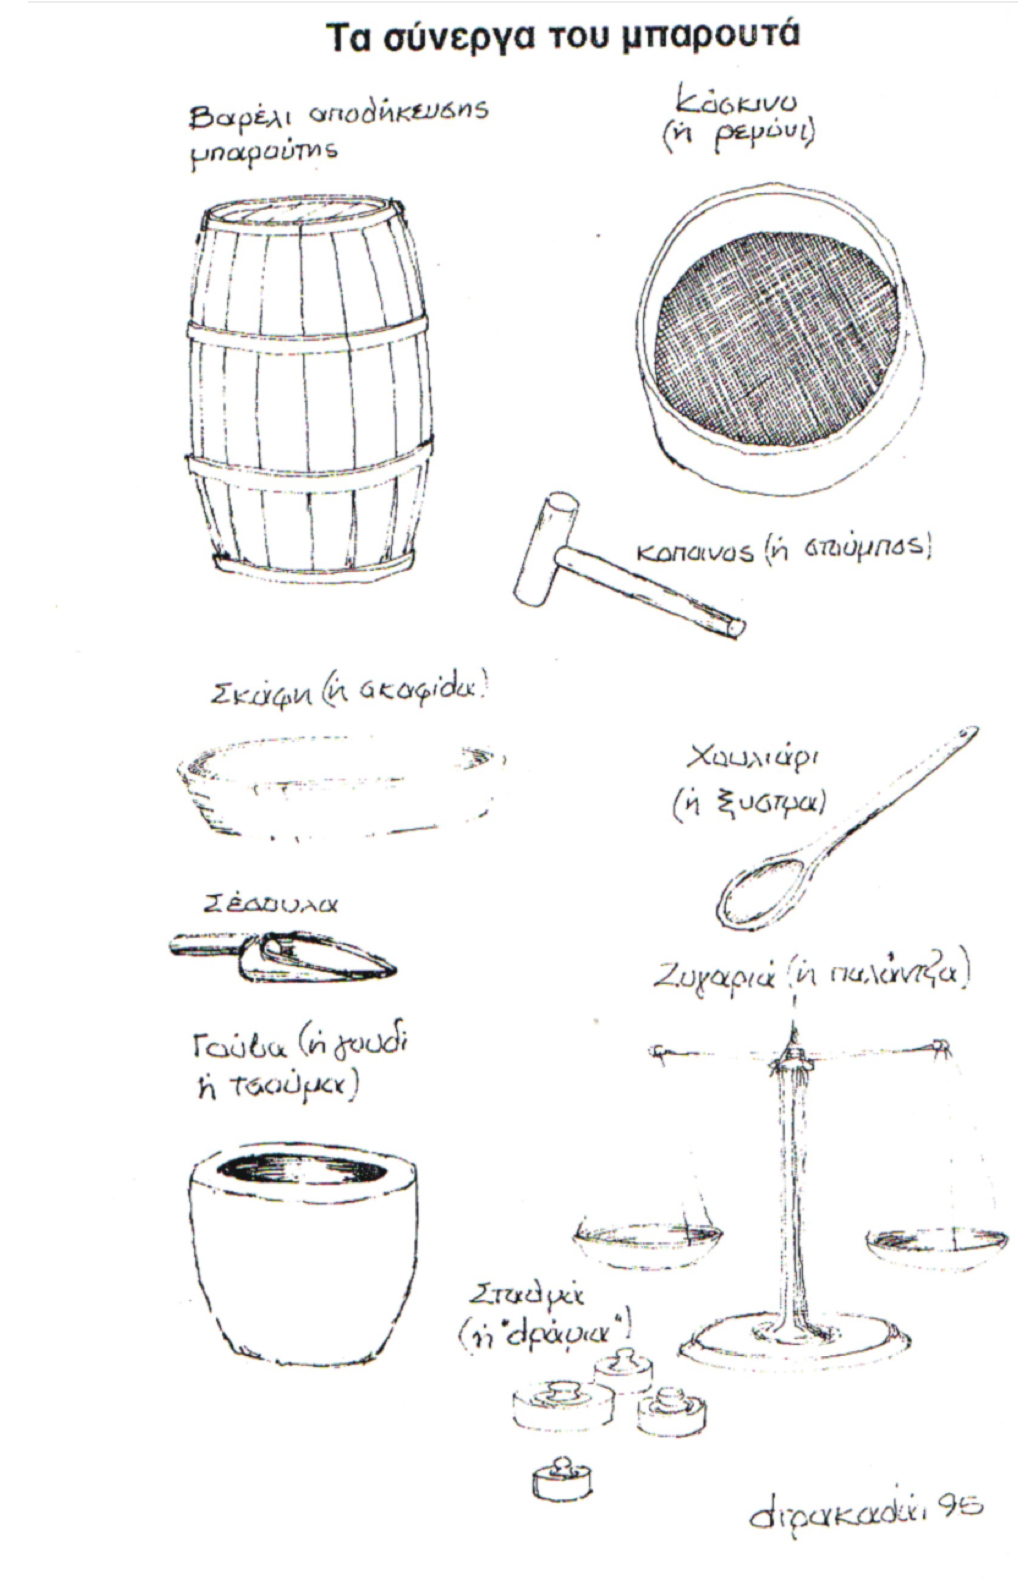 Τα σύνεργα του μπαρουτά
Βαρέλι αποθήκευσης
μπαρούτης
Κόσκινο
(ή ρεμόνι)
κοπανος (ή στούμπος)
Σκάφη (ή σκαφίδα)
Χουλιάρι
(ή ξυστρα)
Σέσουλα
Ζυγαριά (ή παλάντζα)
Γούβα (ή γουδί
ή τσούμα)
Σταθμά
(ή "δράμια")
95